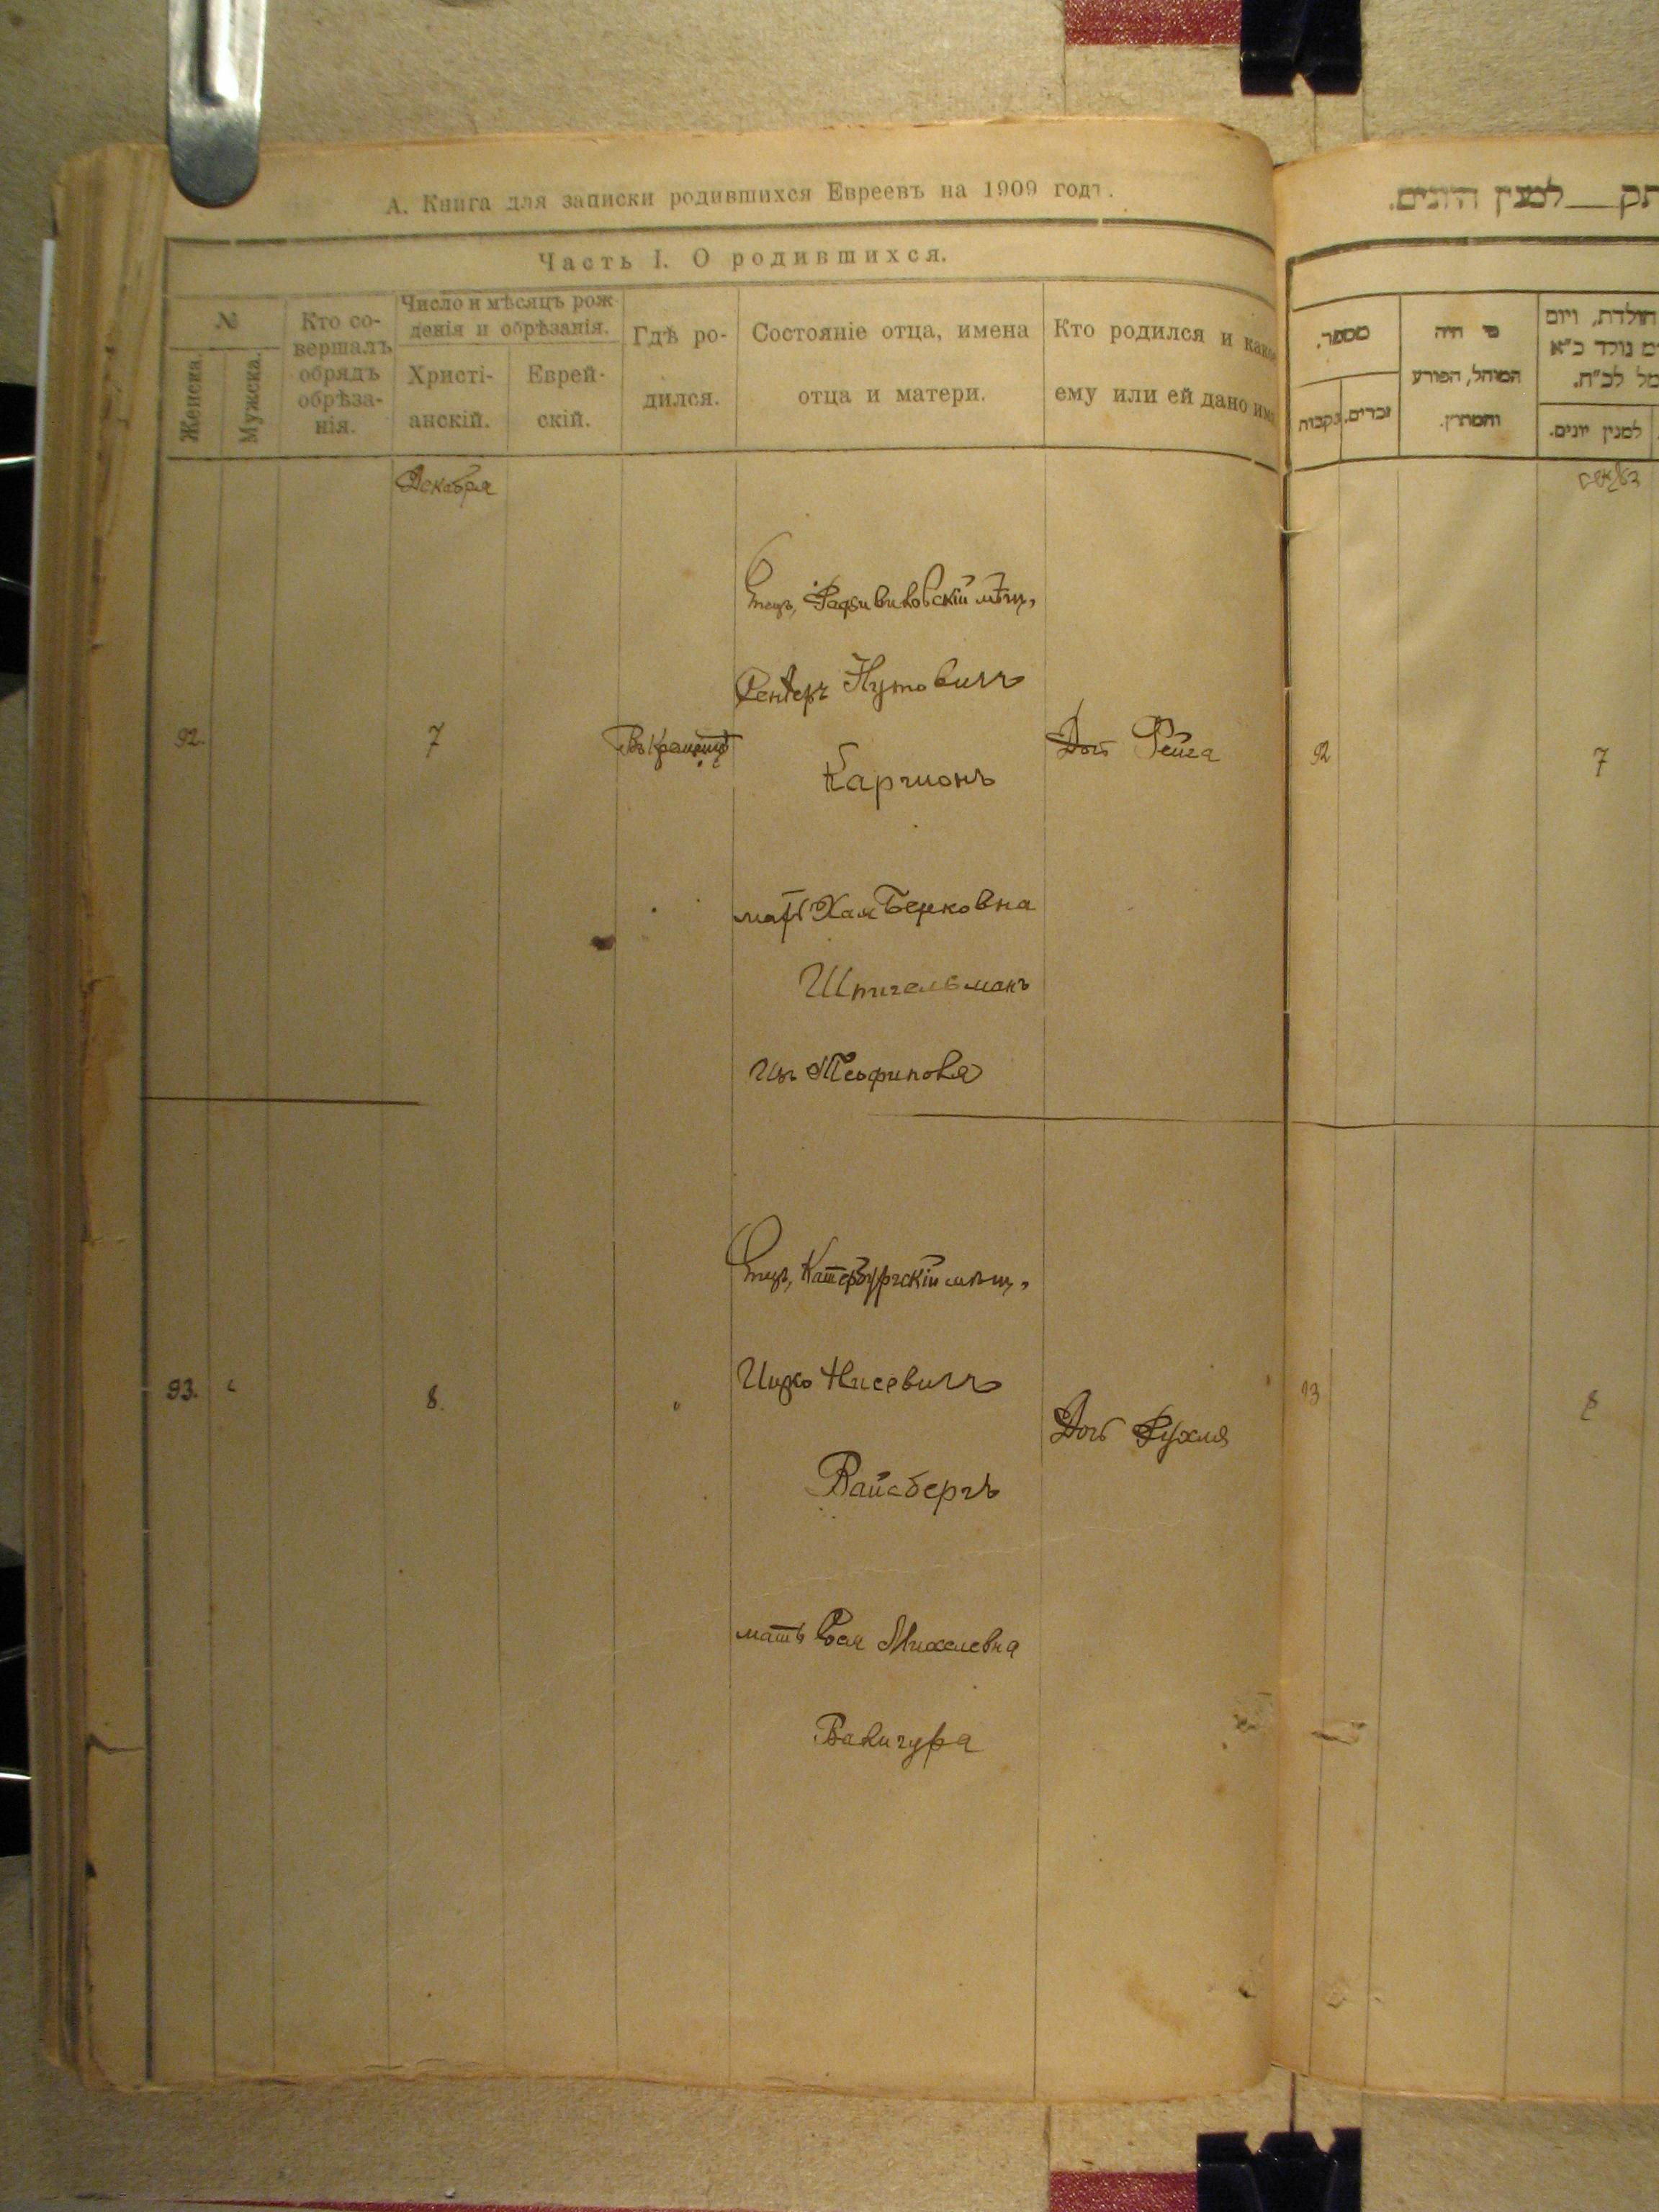 А. Книга для записки родившихся Евреевъ на 1909 годъ.
Часть I. О родившихся.
№
Женска.
Мужска.
Кто со-
вершалъ
обрядъ
обрѣза-
нія.
Число и мѣсяцъ рож-
денія и обрѣзанія.
Христі-
анскій.
Еврей-
скій.
Гдѣ ро-
дился.
Состояніе отца, имена
отца и матери.
Кто родился и како
ему или ей дано имя
Декабря
92.
7
Отецъ, Радзивиловскій мѣщ.
Нутовичъ
Каргионъ
мать Хая Берковна
Штигельманъ
Изъ
Дочь Рейза
93.
8.
"
Отецъ, Катербургскій мѣщ.
Ицко Нисевичъ
Вайсбергъ
мать Михелевна
Вакигура
Дочь Рухля
למנין היונים.
מספר.
נקבות
זכרים.
מי היה
המוהל, הפורע
והמתרן.
למנין יונים.
דעקאב
92
7
93
8